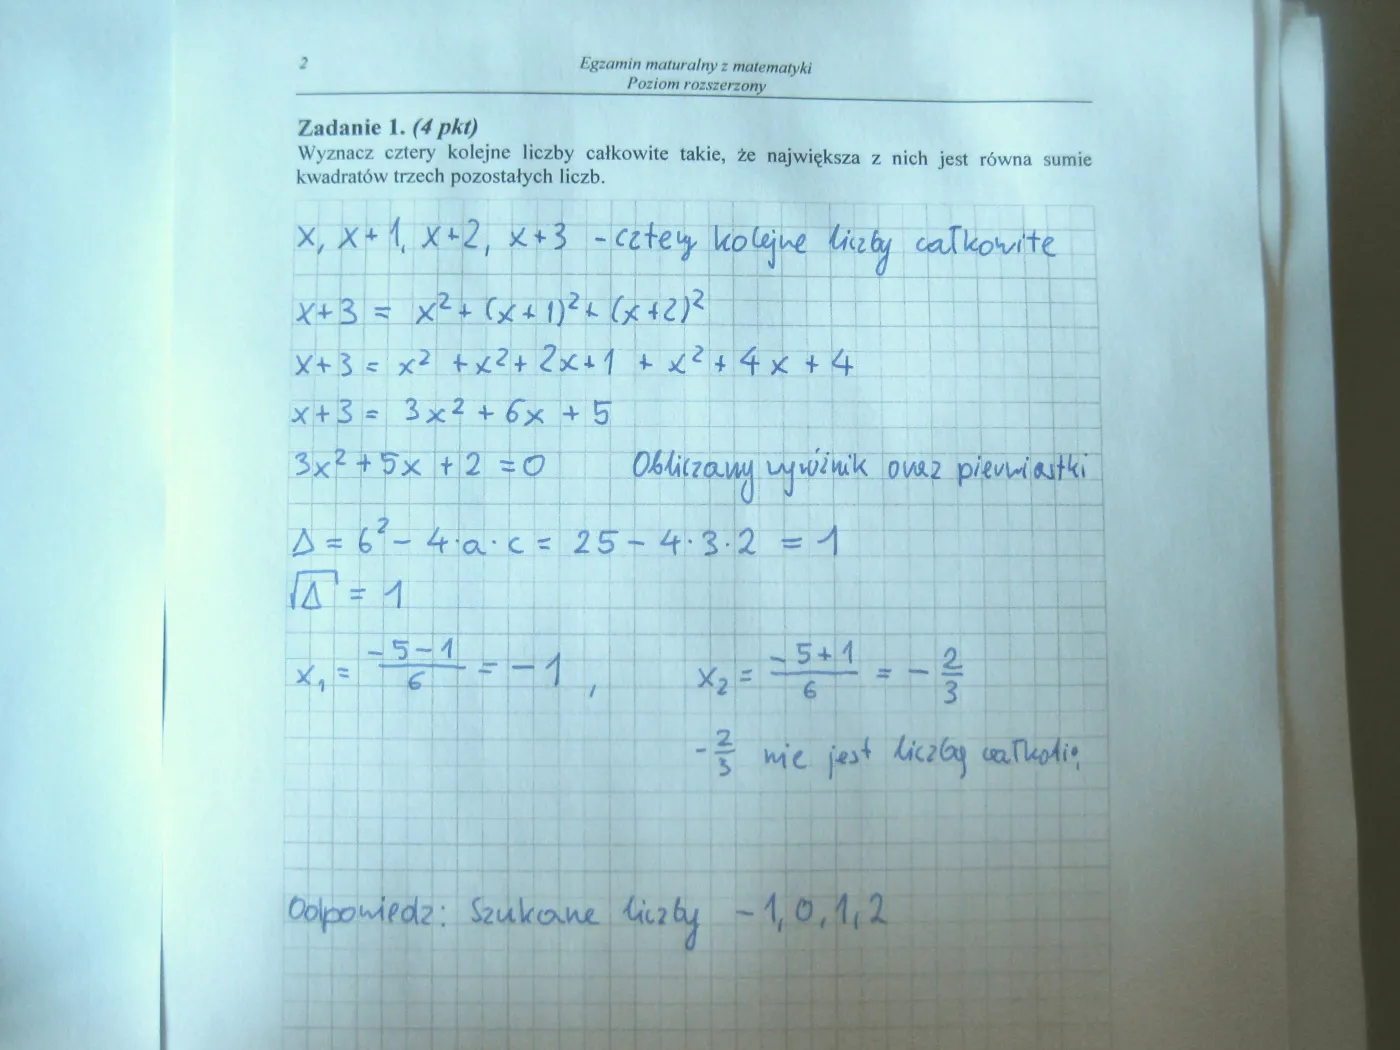 2
Egzamin maturalny z matematyki
Poziom rozszerzony
Zadanie 1. (4 pkt)
Wyznacz cztery kolejne liczby całkowite takie, że największa z nich jest równa sumie
kwadratów trzech pozostałych liczb.
x, x+1, x+2, x+3 - cztery kolejne liczby całkowite
x+3 = x² + (x+1)² + (x+2)²
x+3 = x² + x² + 2x+1 + x² + 4x + 4
x+3 = 3x² + 6x + 5
3x² + 5x + 2 = 0 Obliczamy wyróżnik oraz pierwiastki
Δ = b² - 4·a·c = 25 - 4·3·2 = 1
√Δ = 1
x₁ = (-5-1)/6 = -1, x₂ = (-5+1)/6 = -2/3
-2/3 nie jest liczbą
Odpowiedz: Szukane liczby -1, 0, 1, 2